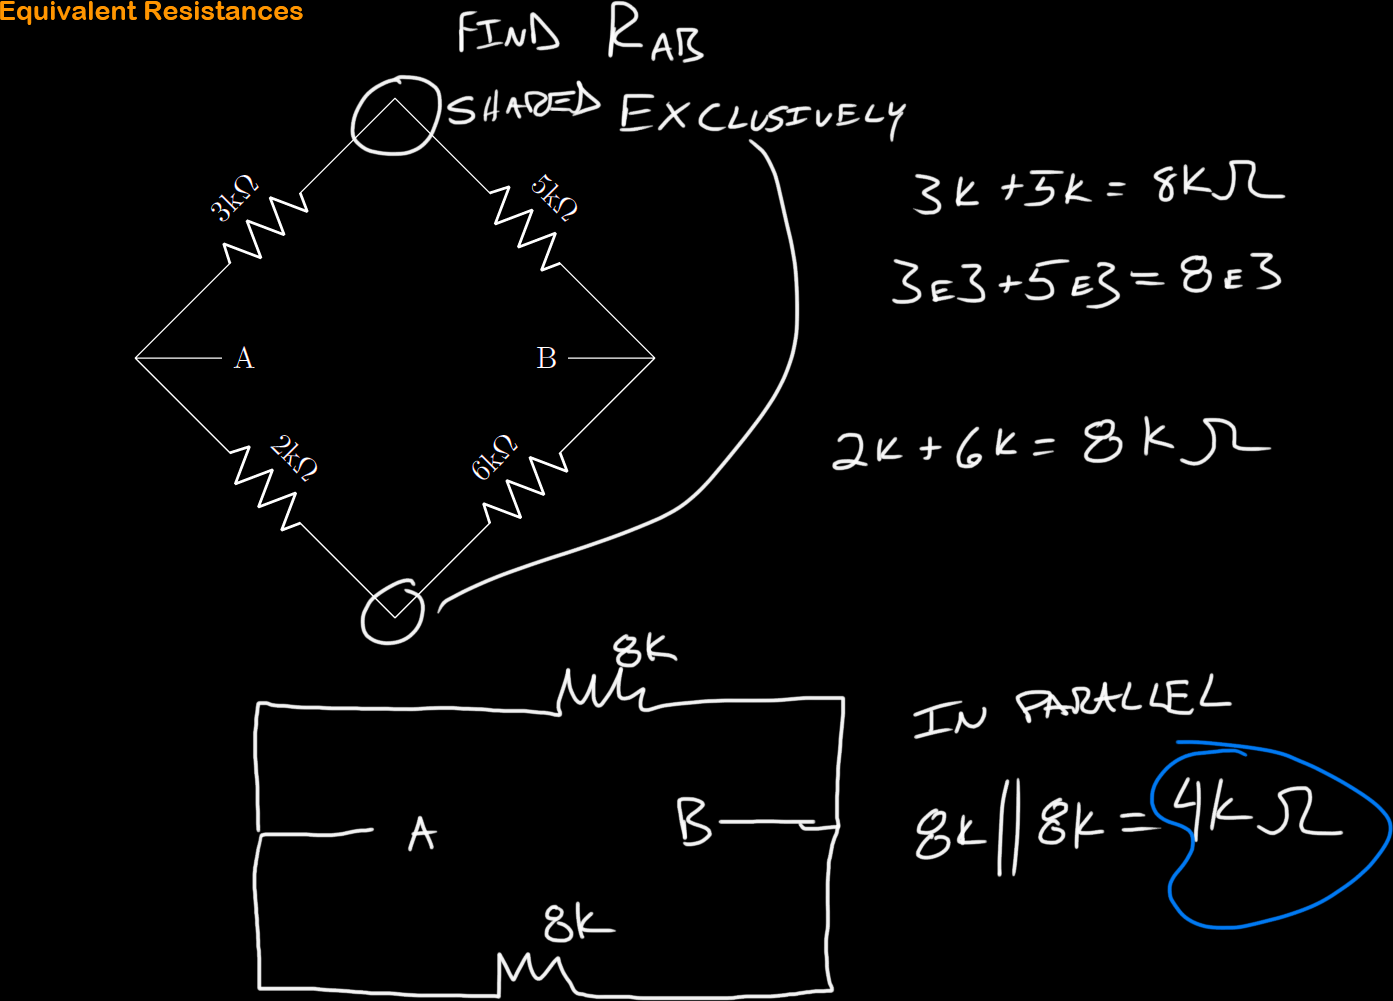 Equivalent Resistances
FIND R_AB
SHARED EXCLUSIVELY
3kΩ
5kΩ
3K + 5K = 8KΩ
3E3 + 5E3 = 8E3
A
B
2kΩ
6kΩ
2K + 6K = 8KΩ
8K
IN PARALLEL
A
B
8K || 8K = 4KΩ
8K